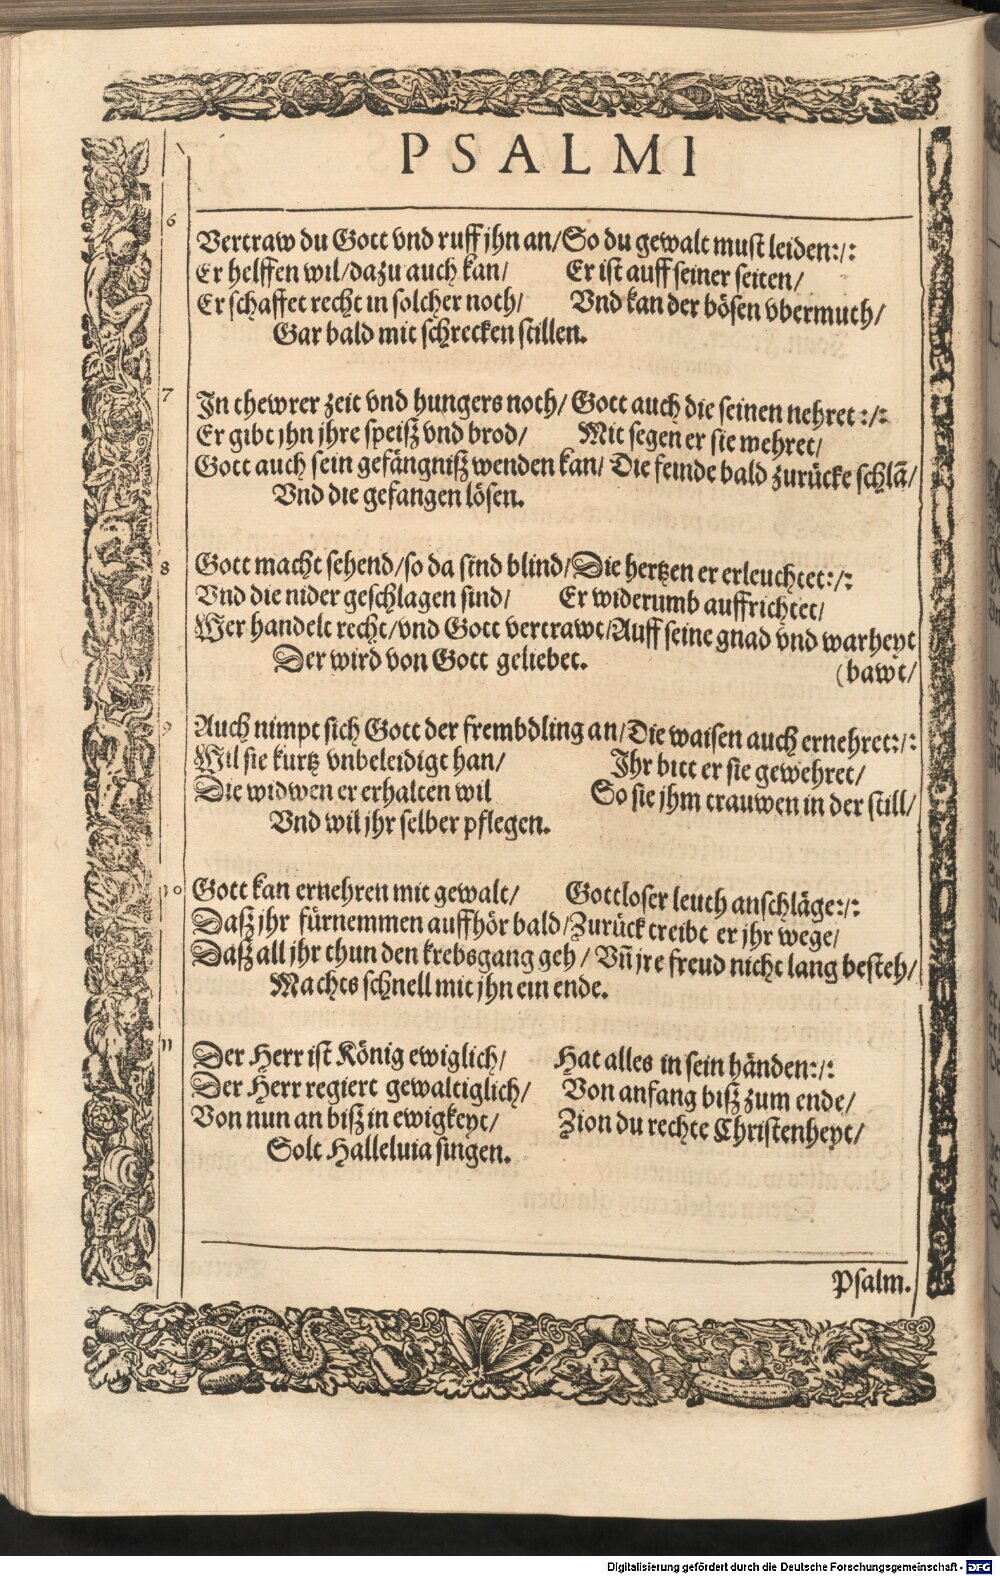 PSALMI
6
Vertraw du Gott vnd ruff jhn an/ So du gewalt must leiden:/:
Er helffen wil/ dazu auch kan/ Er ist auff seiner seiten/
Er schaffet recht in solcher noth/ Vnd kan der bösen vbermuth/
Gar bald mit schrecken stillen.
7
In thewrer zeit vnd hungers noth/ Gott auch die seinen nehret:/:
Er gibt jhn jhre speisz vnd brod/ Mit segen er sie mehret/
Gott auch sein gefängnisz wenden kan/ Die feinde bald zurücke schlā/
Vnd die gefangen lösen.
8
Gott macht sehend/ so da sind blind/ Die hertzen er erleuchtet:/:
Vnd die nider geschlagen sind/ Er widerumb auffrichtet/
Wer handelt recht/ vnd Gott vertrawt/ Auff seine gnad vnd warheyt
Der wird von Gott geliebet. (bawt/
9
Auch nimpt sich Gott der frembdling an/ Die waisen auch ernehret:/:
Wil sie kurtz vnbeleidigt han/ Ihr bitt er sie gewehret/
Die widwen er erhalten wil So sie jhm trauwen in der still/
Vnd wil jhr selber pflegen.
10
Gott kan ernehren mit gewalt/ Gottloser leuth anschläge:/:
Dasz jhr fürnemmen auffhör bald/ Zurück treibt er jhr wege/
Dasz all jhr thun den krebsgang geh/ Vn̄ jre freud nicht lang besteh/
Machts schnell mit jhn ein ende.
11
Der Herr ist König ewiglich/ Hat alles in sein händen:/:
Der Herr regiert gewaltiglich/ Von anfang bisz zum ende/
Von nun an bisz in ewigkeyt/ Zion du rechte Christenheyt/
Solt Halleluia singen.
Psalm.
Digitalisierung gefördert durch die Deutsche Forschungsgemeinschaft - DFG